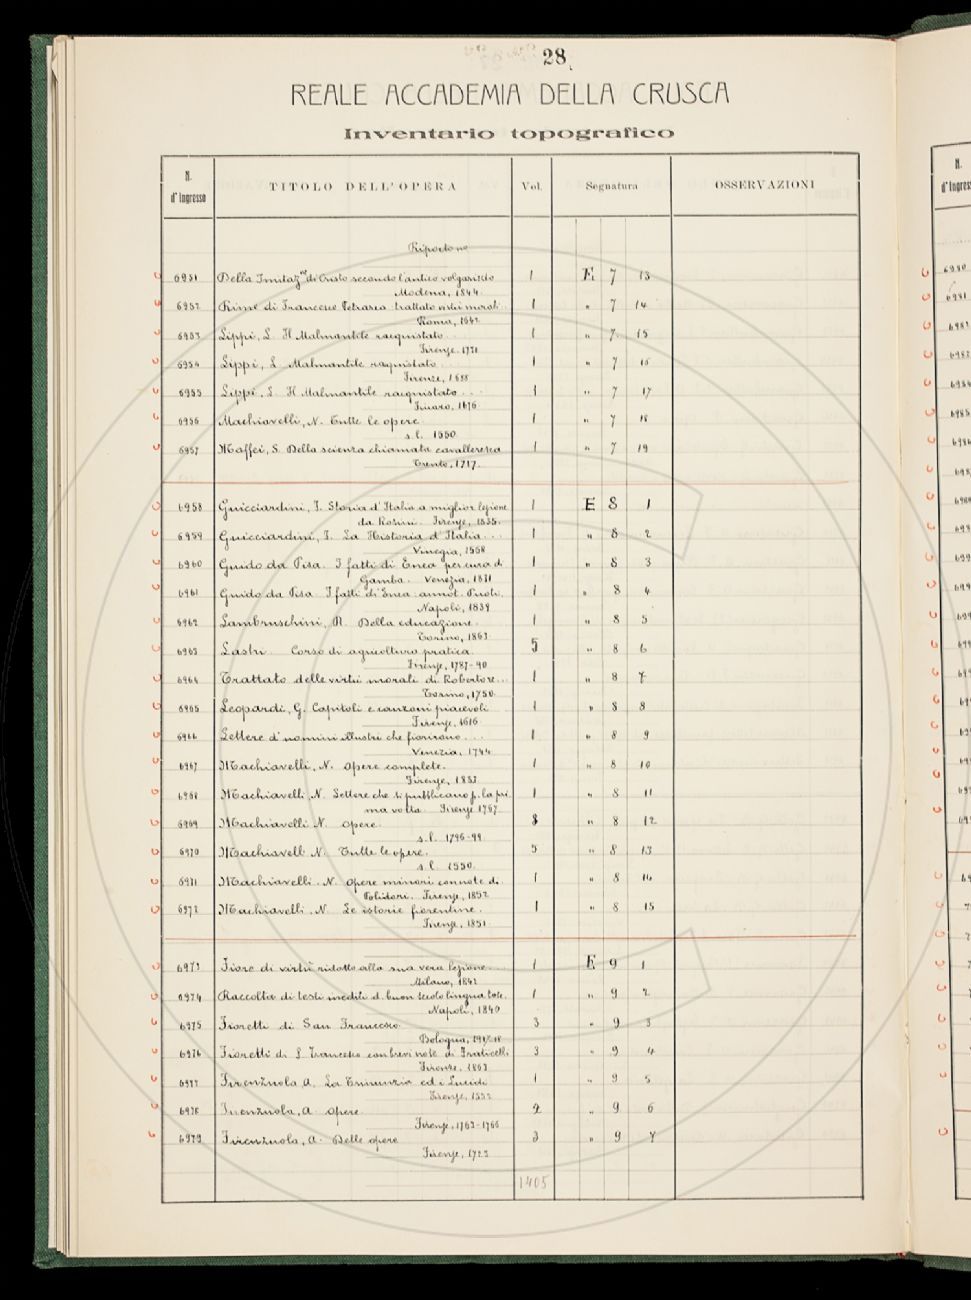 28
REALE ACCADEMIA DELLA CRUSCA
Inventario topografico
N. d'ingresso TITOLO DELL'OPERA Vol. Segnatura OSSERVAZIONI
Riporto no
6951 Della Imitaz.ne di Cristo secondo l'antico volgarizzto 1 E 7 13
Modena, 1844.
6952 Rime di Francesco Petrarca trattato virtù morali 1 " 7 14
Roma, 1642
6953 Lippi, L. Il Malmantile racquistato 1 " 7 15
Firenze, 1731
6954 Lippi, L. Malmantile racquistato 1 " 7 16
Firenze, 1688
6955 Lippi, L. Il Malmantile racquistato 1 " 7 17
1676
6956 Machiavelli, N. Tutte le opere 1 " 7 18
s.l. 1550
6957 Maffei, S. Della scienza chiamata cavalleresca 1 " 7 19
Trento, 1717.
6958 Guicciardini, F. Storia d'Italia a miglior lezione 1 E 8 1
da Rosini. Firenze, 1835.
6959 Guicciardini, F. La Historia d'Italia 1 " 8 2
Vinegia, 1568
6960 Guido da Pisa. I fatti di Enea per cura di 1 " 8 3
Gamba. Venezia, 1831
6961 Guido da Pisa. I fatti di Enea annot. Puoti 1 " 8 4
Napoli, 1839
6962 Lambruschini, R. Della educazione. 1 " 8 5
Torino, 1863
6963 Lastri. Corso di agricoltura pratica. 5 " 8 6
Firenze, 1787-90
6964 Trattato delle virtù morali di Roberto re... 1 " 8 7
Torino, 1750.
6965 Leopardi, G. Capitoli e canzoni piacevoli 1 " 8 8
Firenze, 1616
6966 Lettere d'uomini illustri che fiorirono ... 1 " 8 9
Venezia, 1744
6967 Machiavelli, N. Opere complete. 1 " 8 10
Firenze, 1833
6968 Machiavelli, N. Lettere che si pubblicano p. la pri 1 " 8 11
ma volta. Firenze 1767
6969 Machiavelli N. Opere. 8 " 8 12
s.l. 1796-99.
6970 Machiavelli N. Tutte le opere. 5 " 8 13
s.l. 1550.
6971 Machiavelli. N. Opere minori con note di 1 " 8 14
Polidori. Firenze, 1852
6972 Machiavelli. N. Le istorie fiorentine. 1 " 8 15
Firenze, 1851
6973 Fiore di virtù ridotto alla sua vera lezione 1 E 9 1
Milano, 1842
6974 Raccolta di testi inediti d. buon secolo lingua tosc. 1 " 9 2
Napoli, 1840
6975 Fioretti di San Francesco. 3 " 9 3
Bologna,
6976 Fioretti di S. Francesco con brevi note di Fraticelli 3 " 9 4
Firenze, 1863
6977 Firenzuola A. La Trinunzia ed i Lucidi 1 " 9 5
Firenze, 1552
6978 Firenzuola, A. Opere. 2 " 9 6
Firenze, 1763-1766
6979 Firenzuola, A. Delle opere 3 " 9 7
Firenze, 1723
1405